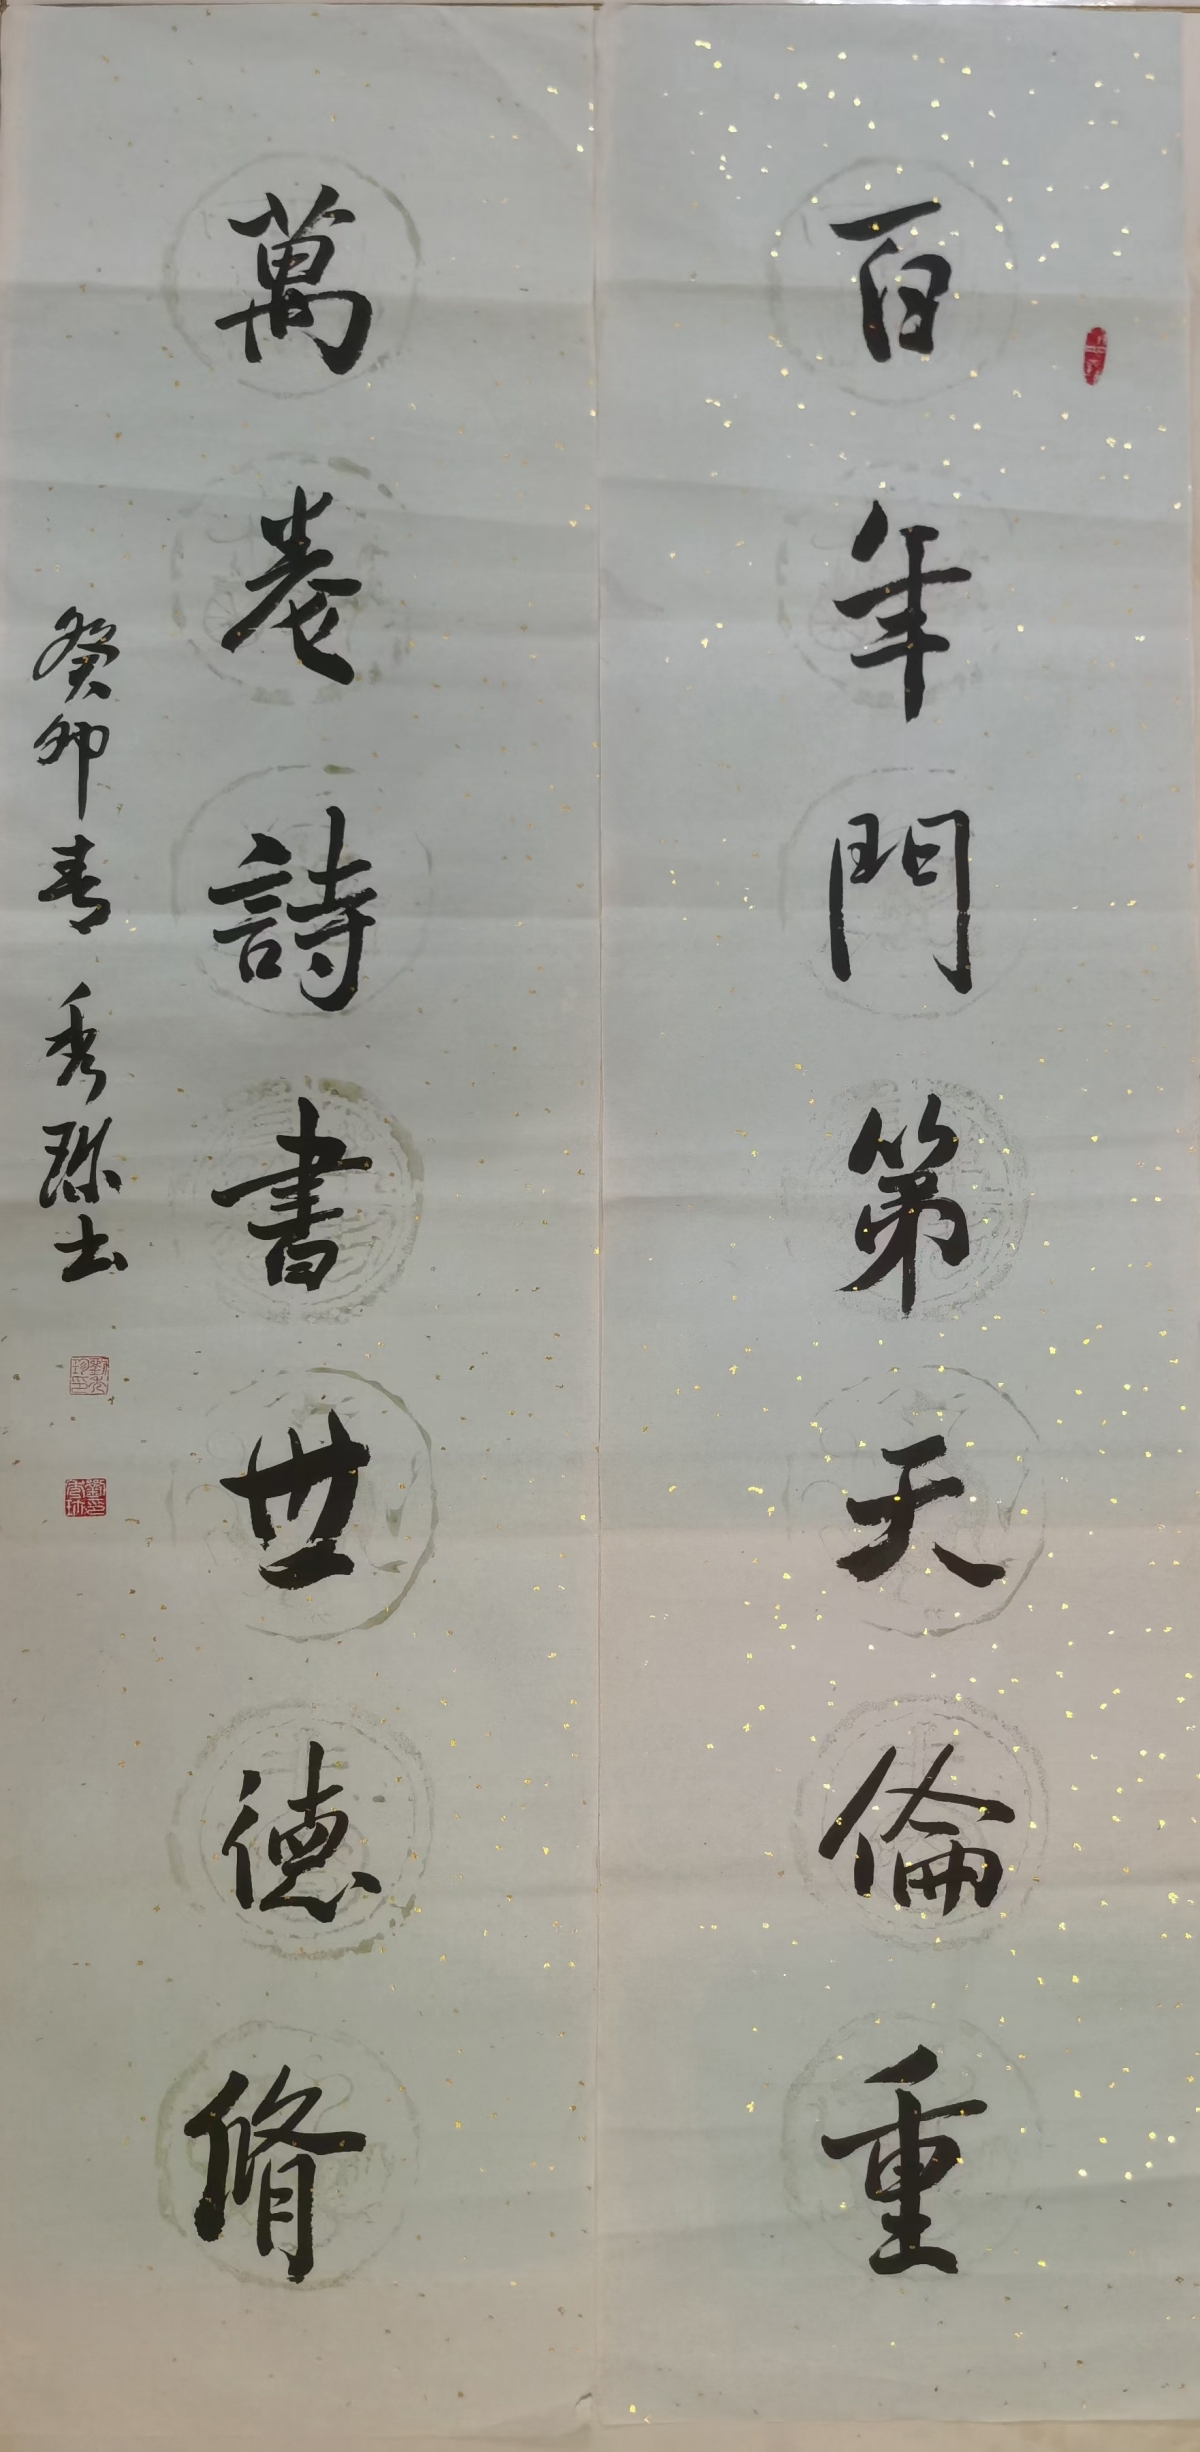 百年門第天倫重
萬卷詩書世德脩
癸卯春 秀珎书